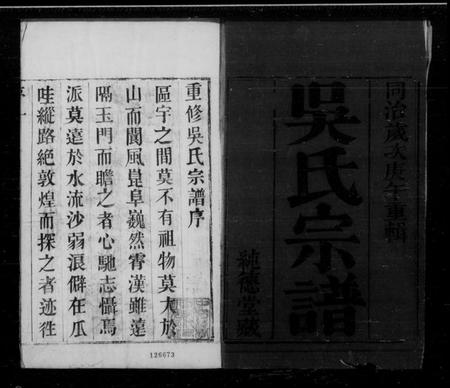 同治歲次庚午重輯
吳氏宗譜
種德堂藏
重修吳氏宗譜序
區宇之間莫不有祖物莫大於
山而閬風崑阜巍然霄漢雖遠
隔玉門而瞻之者心馳志懾焉
派莫遠於水流沙弱浪僻在瓜
哇縱路絶敦煌而探之者迹徃
序一
126673